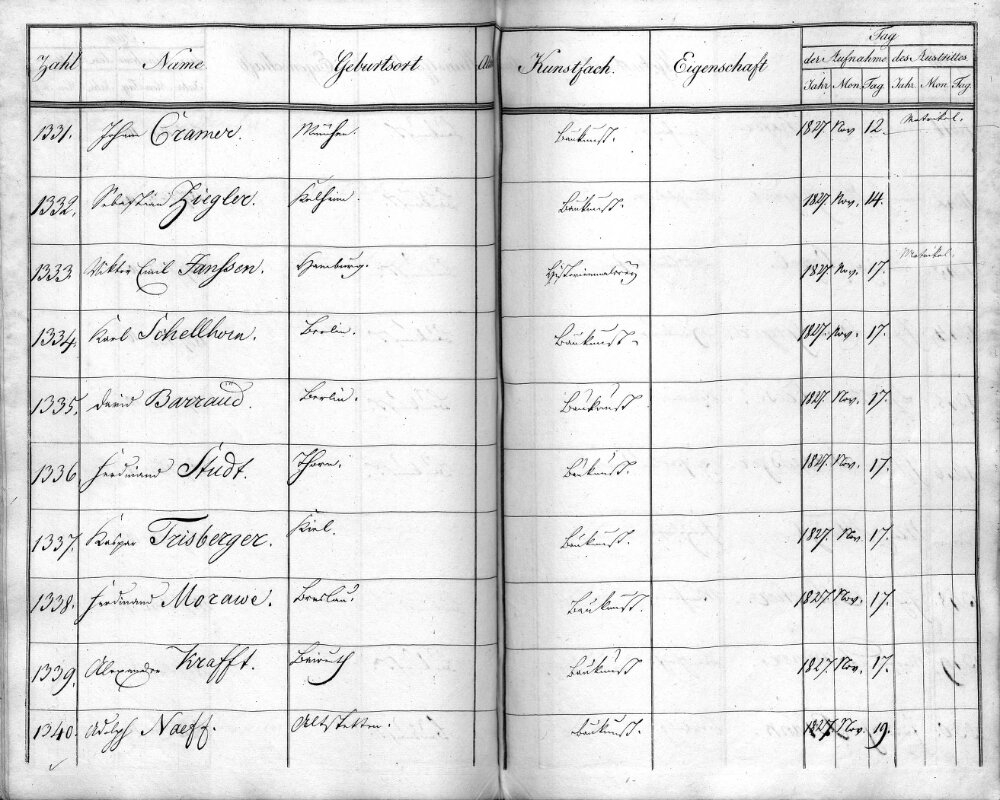 Zahl Name Geburtsort Kunstfach. Eigenschaft Tag
der Aufnahme des Austrittes
Jahr Mon. Tag Jahr Mon. Tag.
1331. Johann Cramer. München. Baukunst. 1827 Nov 12. Matrikel.
1332. Sebastian Ziegler. Kelheim. Baukunst. 1827 Nov. 14.
1333 Viktor Emil Janssen. Hamburg. Historienmalerey 1827. Nov. 17. Matrikel.
1334. Karl Schellhorn. Berlin. Baukunst. 1827. Nov. 17.
1335. David Barraud. Berlin. Baukunst 1827. Nov. 17.
1336 Ferdinand Studt. Thorn. Baukunst. 1827. Nov. 17.
1337. Kaspar Trisberger. Kiel. Baukunst. 1827. Nov. 17.
1338. Ferdinand Morawe. Breslau. Baukunst. 1827. Nov. 17.
1339. Alexander Krafft. Beiruth Baukunst 1827. Nov. 17.
1340. Adolph Naeff. Altstetten. Baukunst. 1827. Nov. 19.